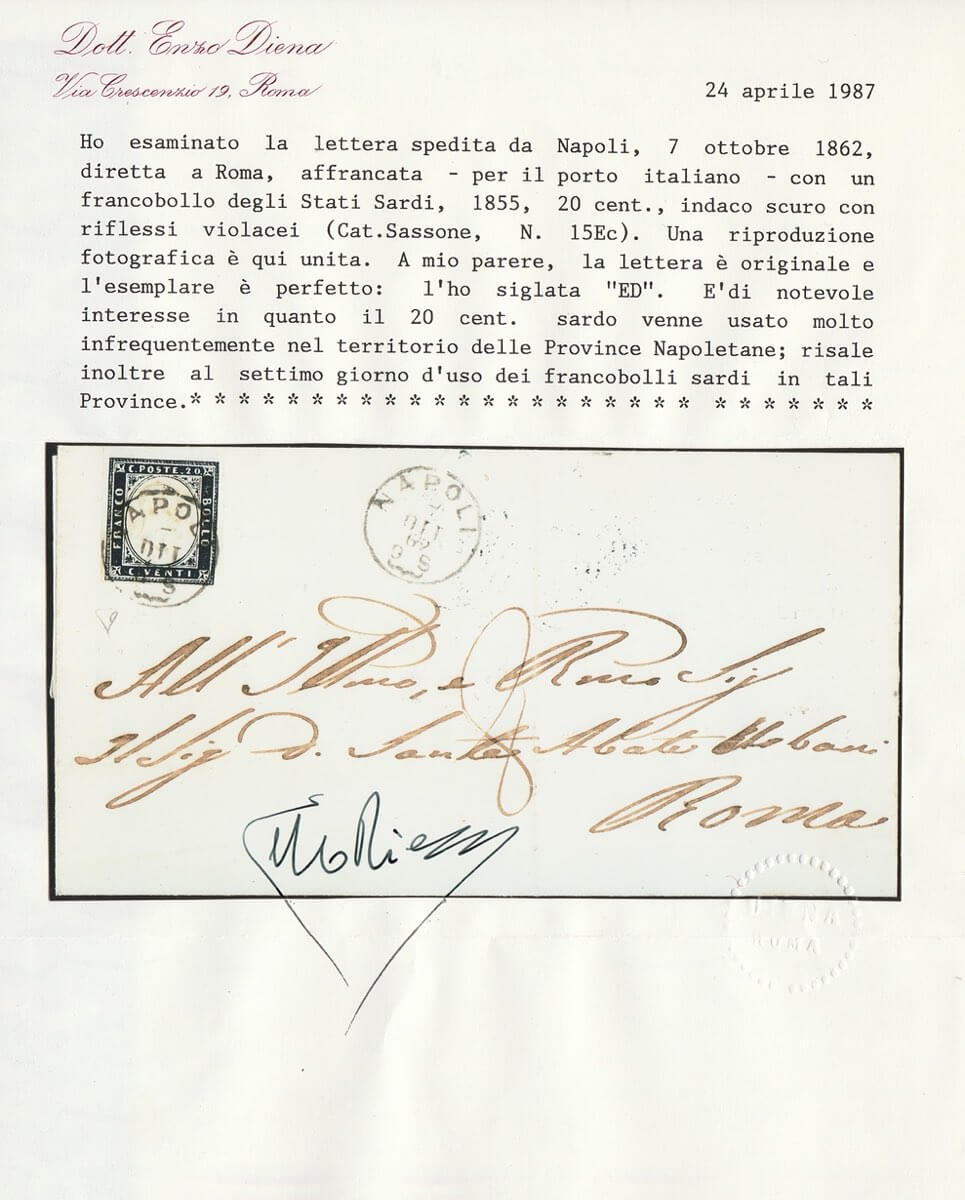 Dott. Enzo Diena
Via Crescenzio 19, Roma
24 aprile 1987
Ho esaminato la lettera spedita da Napoli, 7 ottobre 1862,
diretta a Roma, affrancata - per il porto italiano - con un
francobollo degli Stati Sardi, 1855, 20 cent., indaco scuro con
riflessi violacei (Cat.Sassone, N. 15Ec). Una riproduzione
fotografica è qui unita. A mio parere, la lettera è originale e
l'esemplare è perfetto: l'ho siglata "ED". E'di notevole
interesse in quanto il 20 cent. sardo venne usato molto
infrequentemente nel territorio delle Province Napoletane; risale
inoltre al settimo giorno d'uso dei francobolli sardi in tali
Province.* * * * * * * * * * * * * * * * * * * * * * * * * * * *
C. POSTE. 20
FRANCO
BOLLO
C. VENTI
APOL
OTT
S
NAPOLI
OTT
62
9 S
All' Illmo, e Rmo Sig
Il Sig D. Sante Abate
Roma
DIENA
ROMA